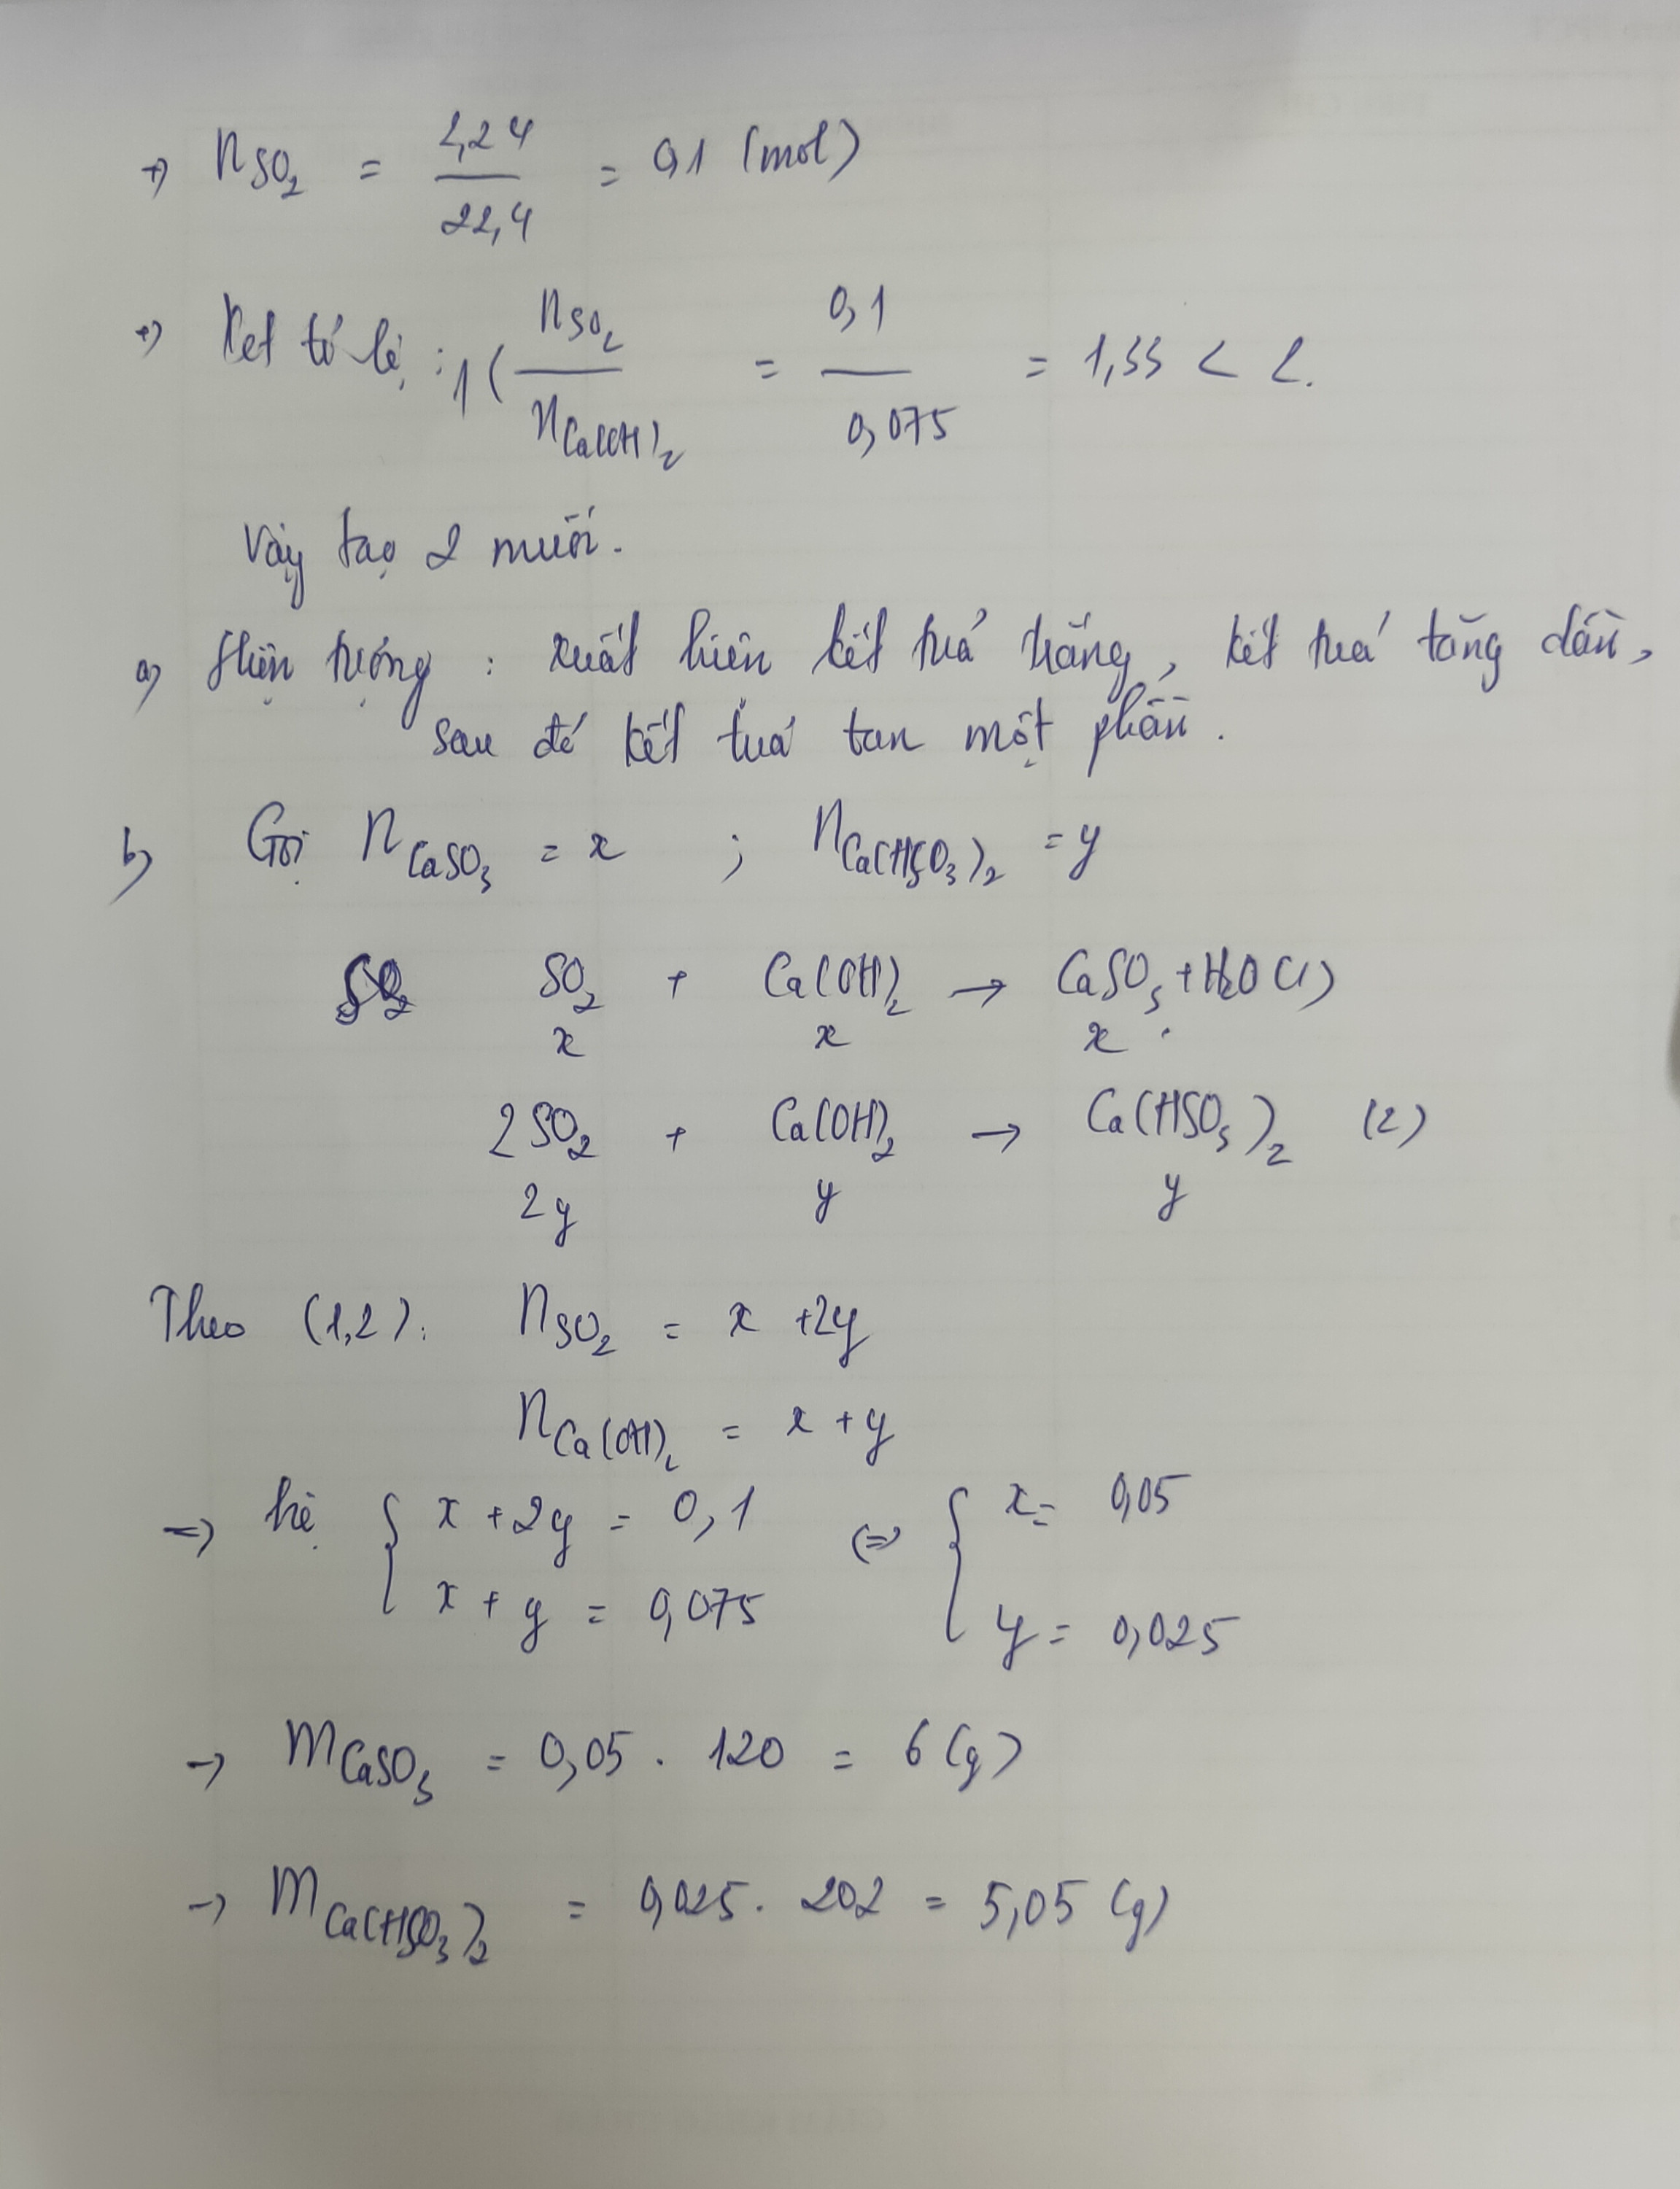 +) nSO2 = 2,24 / 22,4 = 0,1 (mol)
+) Xét tỉ lệ : 1 < nSO2 / nCa(OH)2 = 0,1 / 0,075 = 1,33 < 2.
Vậy tạo 2 muối.
a) Hiện tượng : xuất hiện kết tuả trắng, kết tuả tăng dần,
sau đó kết tuả tan một phần.
b) Gọi nCaSO3 = x ; nCa(HSO3)2 = y
SO2 + Ca(OH)2 → CaSO3 + H2O (1)
x x x
2SO2 + Ca(OH)2 → Ca(HSO3)2 (2)
2y y y
Theo (1,2): nSO2 = x + 2y
nCa(OH)2 = x + y
=> hệ { x + 2y = 0,1 <=> { x = 0,05
x + y = 0,075 y = 0,025
→ mCaSO3 = 0,05 . 120 = 6 (g)
→ mCa(HSO3)2 = 0,025 . 202 = 5,05 (g)